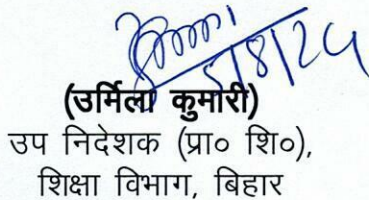 5/8/24
(उर्मिला कुमारी)
उप निदेशक (प्रा० शि०),
शिक्षा विभाग, बिहार